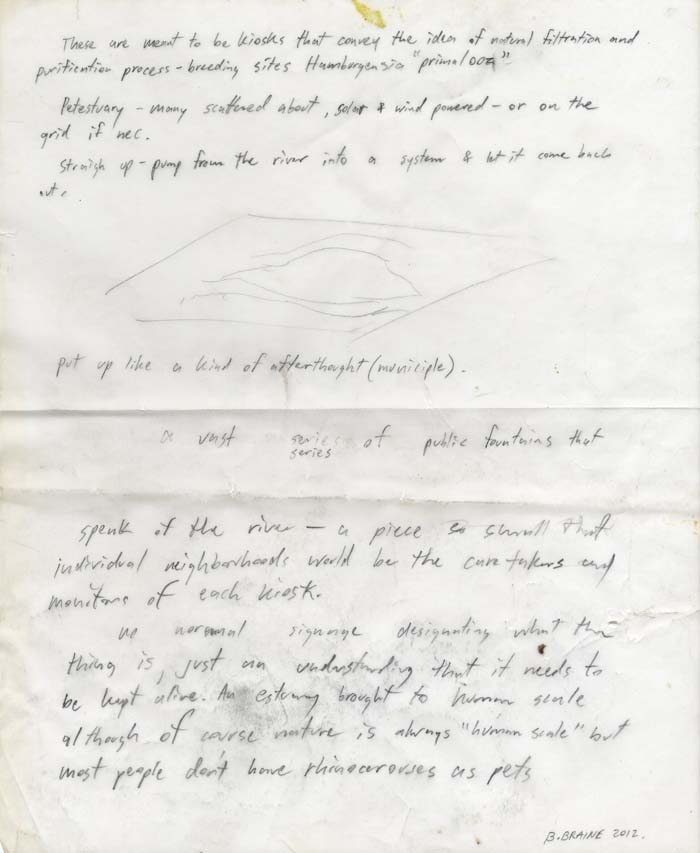 These are meant to be kiosks that convey the idea of natural filtration and
purification process - breeding sites Hamburgensia "primal ooz"
Petestuary - many scattered about, solar & wind powered - or on the
grid if nec.
straigh up - pump from the river into a system & let it come back
out.
put up like a kind of afterthought (municiple).
a vast series of public fountains that
series
speak of the river — a piece so small that
individual neighborhoods would be the care takers and
monitors of each kiosk.
no normal signage designating what the
thing is, just an understanding that it needs to
be kept alive. An estuary brought to human scale
although of course nature is always "human scale" but
most people don't have rhinocerouses as pets
B. BRAINE 2012.